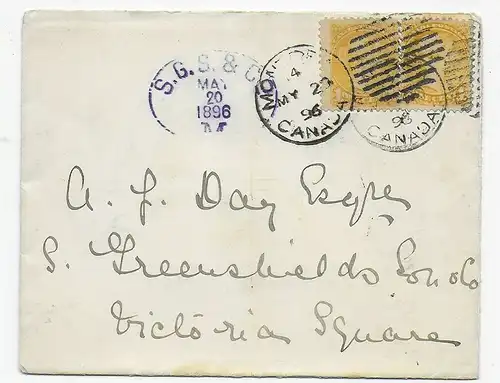 S. G. S. & C
MAY
20
1896
MONTRE
4
MY 20
96
CANADA
96
CANADA
A. J. Day Esqre
S. Greenshields Son & Co
Victoria Square